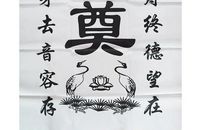 终德望在
奠
身去音容存